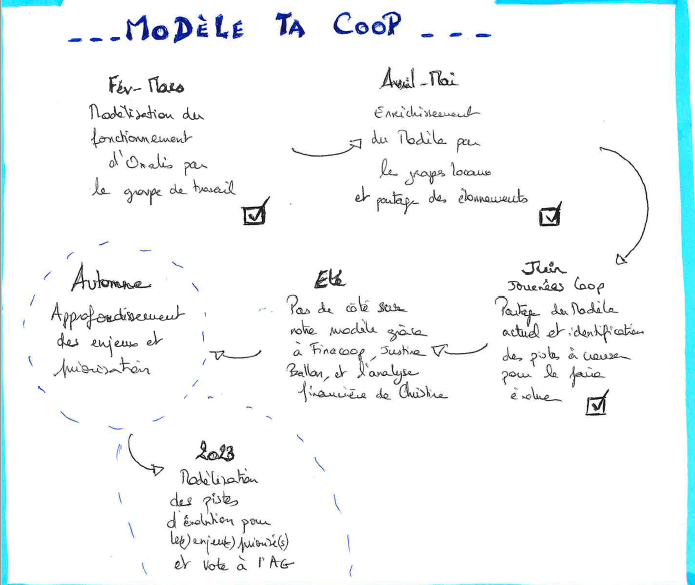 ---MODÈLE TA COOP---
Fév-Mars
Modélisation du
fonctionnement
d'Oxalis par
le groupe de travail
Avril-Mai
Enrichissement
du Modèle par
le groupes locaux
et partage des étonnements
Juin
Journées Coop
Partage du Modèle
actuel et identification
des pistes à creuser
pour le faire
évoluer
Eté
Pas de côté sur
notre modèle grâce
à Finacoop, Justine
Ballon, et l'analyse
financière de Christine
Automne
Approfondissement
des enjeux et
priorisation
2023
Modélisation
des pistes
d'évolution pour
le(s) enjeu(x) priorisé(s)
et vote à l'AG